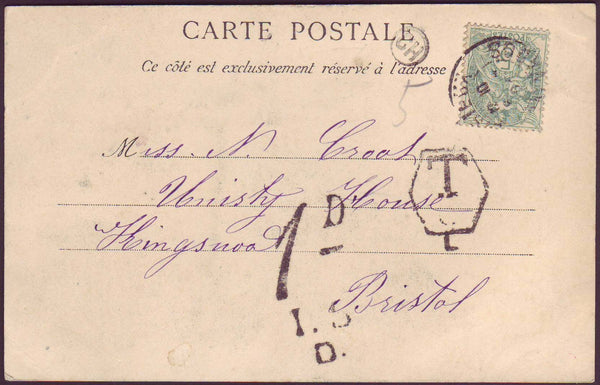 CARTE POSTALE
Ce côté est exclusivement réservé à l'adresse
CH
5
Miss. N. Croot
Unisty House
Kingswood
Bristol
T
L
1 D
I. S
D.